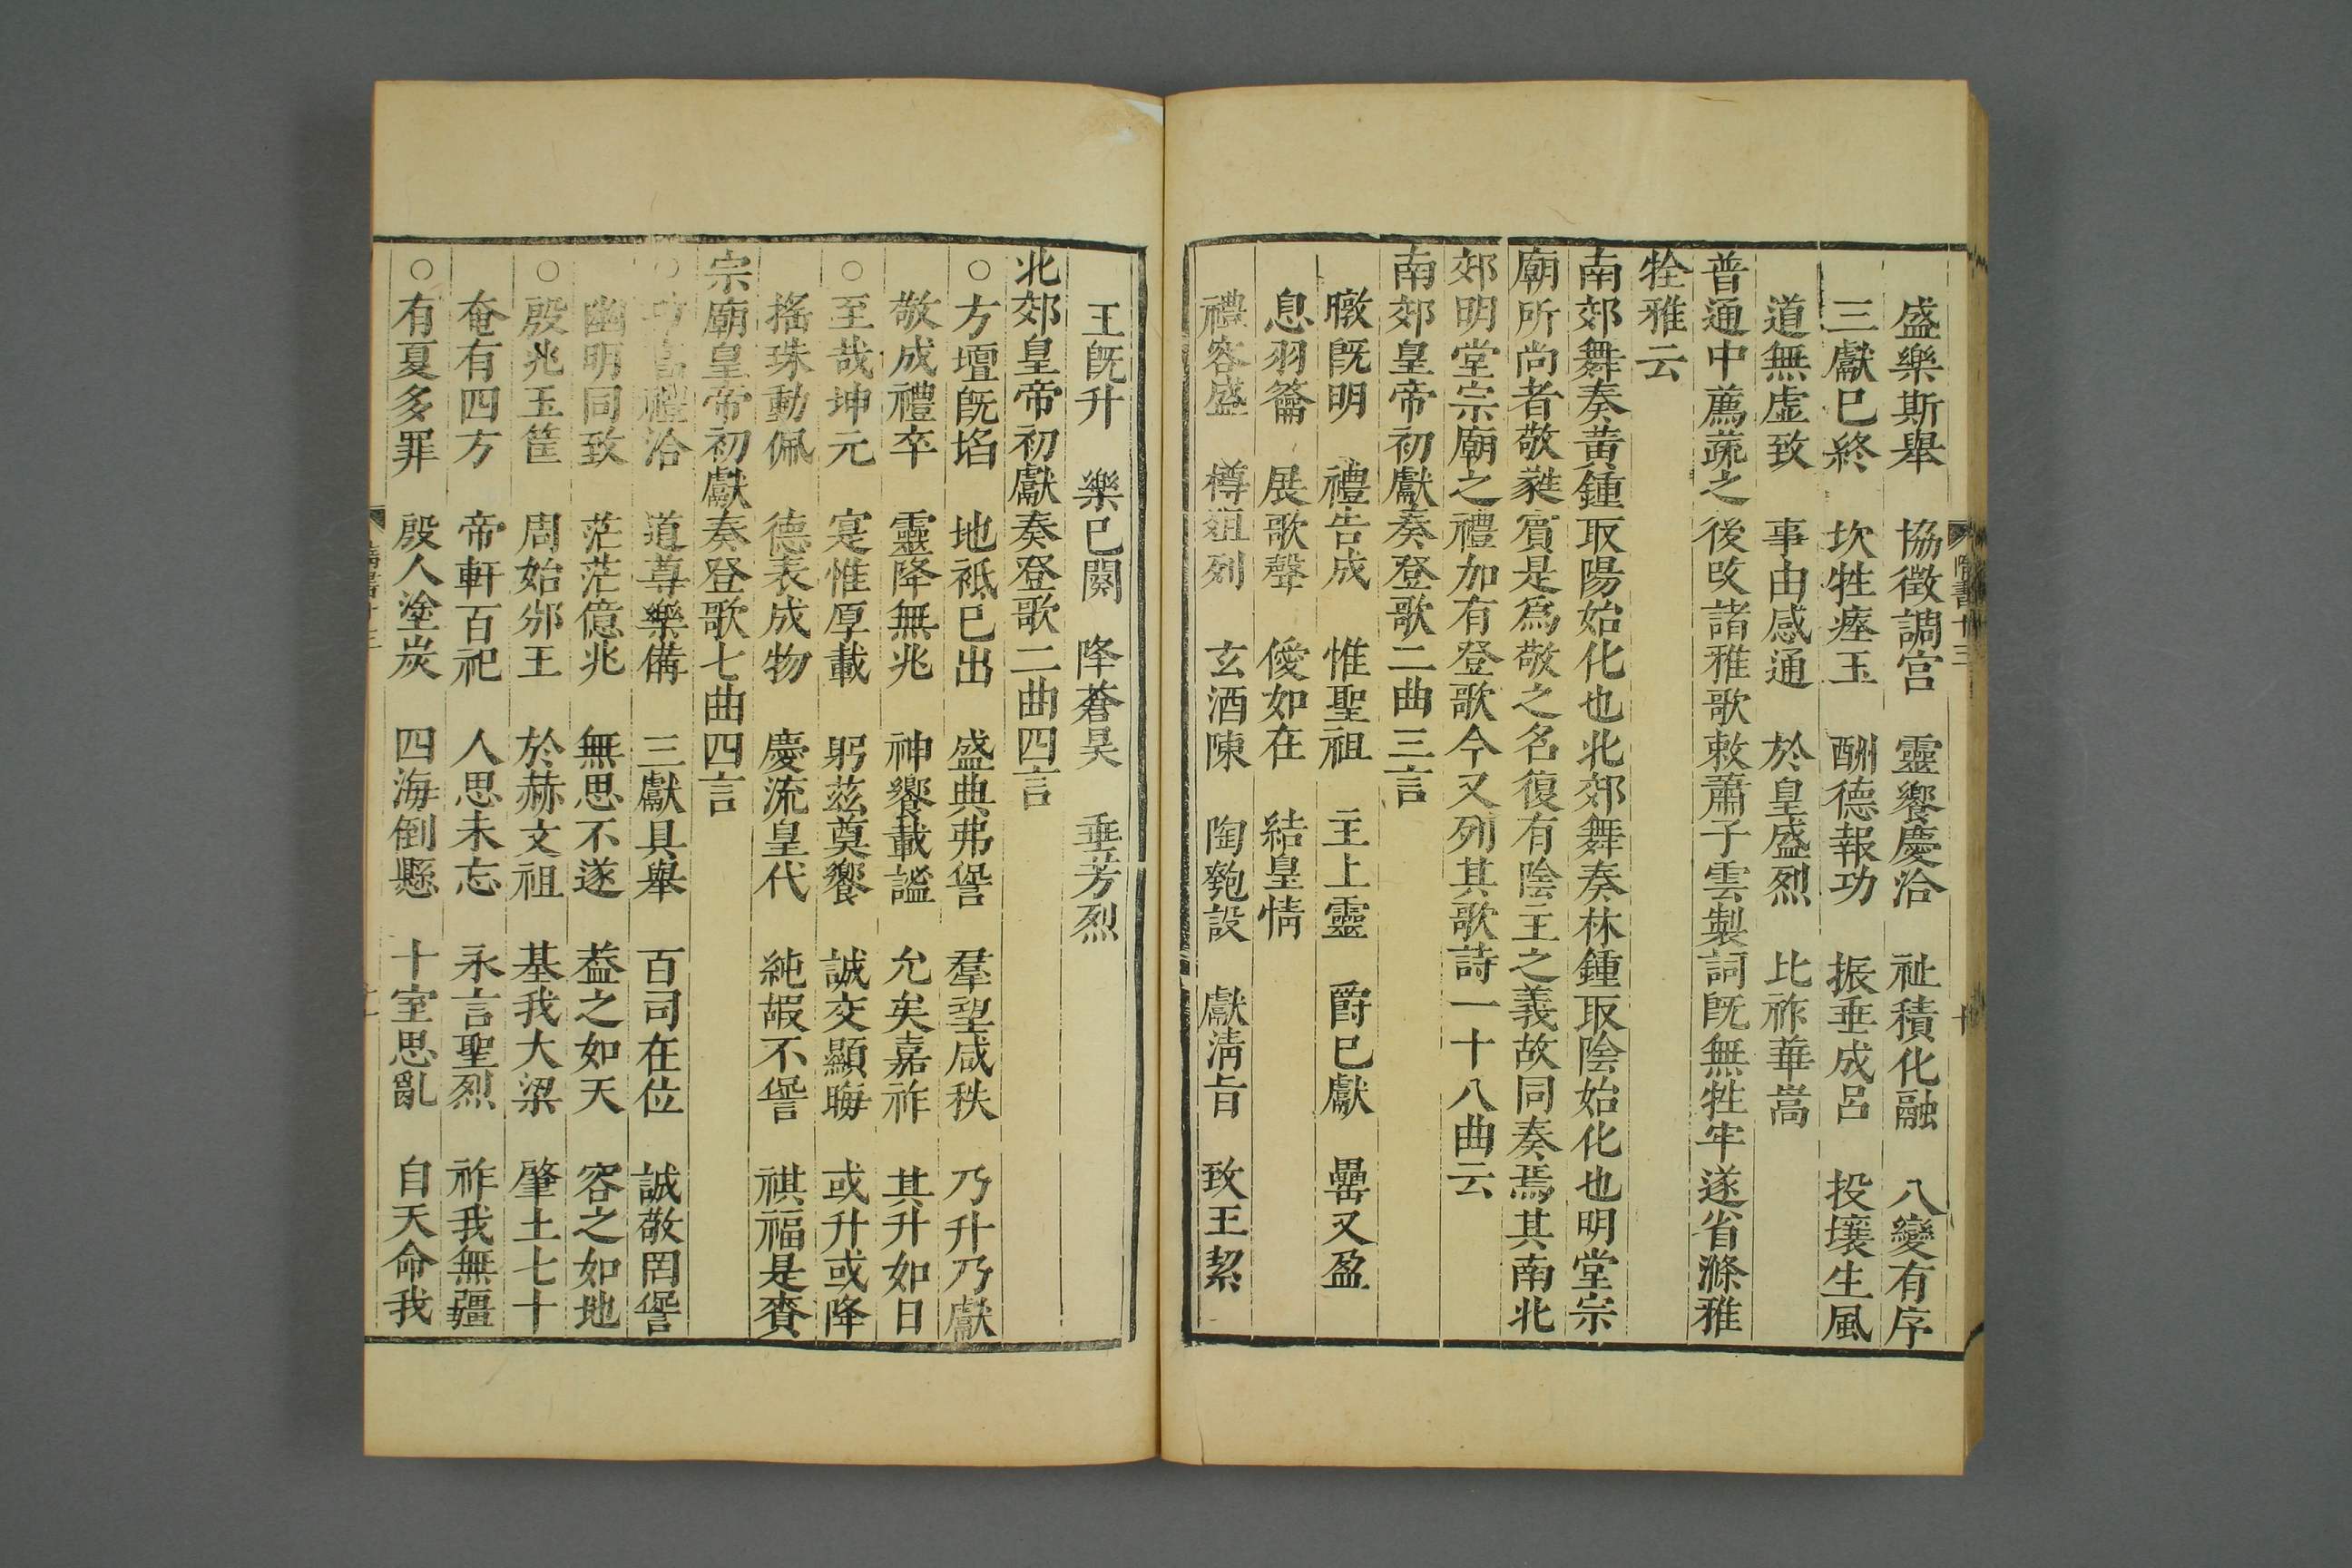 盛樂斯舉　協徵調宮　靈饗慶洽　祉積化融　八變有序
三獻已終　坎牲瘞玉　酬德報功　振垂成呂　投壤生風
道無虛致　事由感通　於皇盛烈　比祚華嵩
普通中薦蔬之後改諸雅歌敕蕭子雲製詞旣無牲牢遂省滌雅
牷雅云
南郊舞奏黃鍾取陽始化也北郊舞奏林鍾取陰始化也明堂宗
廟所尚者敬蕤賓是爲敬之名復有陰主之義故同奏焉其南北
郊明堂宗廟之禮加有登歌今又列其歌詩一十八曲云
南郊皇帝初獻奏登歌二曲三言
暾旣明　禮告成　惟聖祖　主上靈　爵已獻　罍又盈
息羽籥　展歌聲　僾如在　結皇情
禮容盛　樽俎列　玄酒陳　陶匏設　獻淸旨　致王絜
王旣升　樂已闋　降蒼昊　垂芳烈
北郊皇帝初獻奏登歌二曲四言
○方壇旣埳　地祇已出　盛典弗諐　羣望咸秩　乃升乃獻
敬成禮卒　靈降無兆　神饗載謐　允矣嘉祚　其升如日
○至哉坤元　寔惟厚載　躬茲奠饗　誠交顯晦　或升或降
搖珠動佩　德表成物　慶流皇代　純嘏不諐　祺福是賚
宗廟皇帝初獻奏登歌七曲四言
○功高禮洽　道尊樂備　三獻具舉　百司在位　誠敬罔諐
幽明同致　茫茫億兆　無思不遂　葢之如天　容之如地
○殷兆玉筐　周始邠王　於赫文祖　基我大梁　肇土七十
奄有四方　帝軒百祀　人思未忘　永言聖烈　祚我無疆
○有夏多罪　殷人塗炭　四海倒懸　十室思亂　自天命我
隋書十三
十